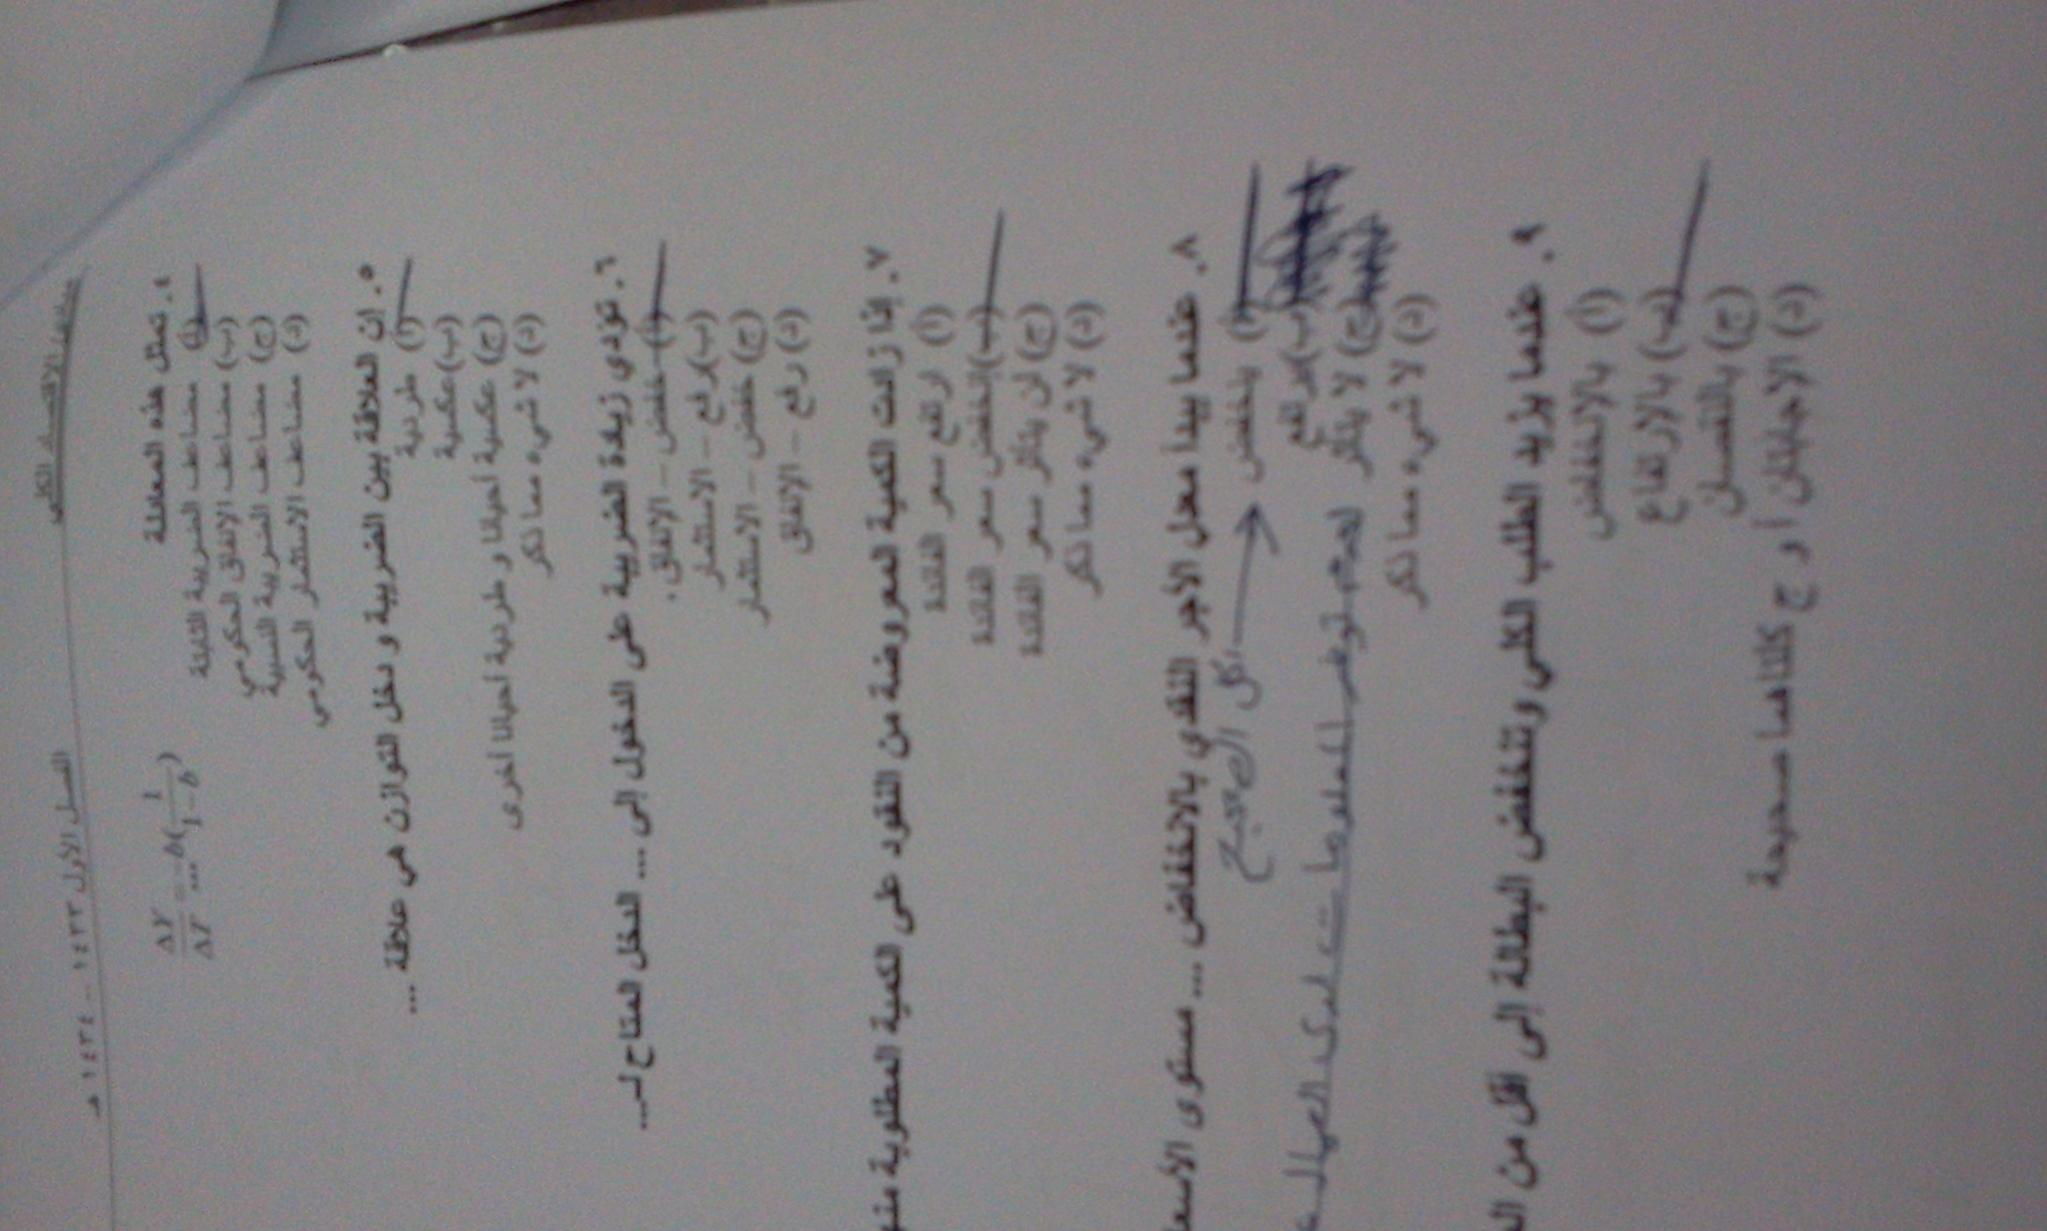 مبادئ الاقتصاد الكلي الفصل الأول ١٤٣٣ - ١٤٣٤ هـ
٤. تمثل هذه المعادلة ΔY/ΔT = -b(1/1-b) ...
(أ) مضاعف الضريبة الثابتة
(ب) مضاعف الانفاق الحكومي
(ج) مضاعف الضريبة النسبية
(د) مضاعف الاستثمار الحكومي
٥. إن العلاقة بين الضريبة و دخل التوازن هي علاقة ...
(أ) طردية
(ب) عكسية
(ج) عكسية أحيانا و طردية أحيانا أخرى
(د) لا شيء مما ذكر
٦. تؤدي زيادة الضريبة على الدخول إلى .... الدخل المتاح لـ...
(أ) خفض - الانفاق.
(ب) رفع - الاستثمار
(ج) خفض - الاستثمار
(د) رفع - الانفاق
٧. إذا زادت الكمية المعروضة من النقود على الكمية المطلوبة منها
(أ) ارتفع سعر الفائدة
(ب) انخفض سعر الفائدة
(ج) لن يتأثر سعر الفائدة
(د) لا شيء مما ذكر
٨. عندما يبدأ معدل الأجر النقدي بالانخفاض ... مستوى الأسعار
(أ) ينخفض ← الحل الصحيح
(ب) يرتفع
(ج) لا يتأثر لعدم توفر المعلومات لدى العمال
(د) لا شيء مما ذكر
٩. عندما يزيد الطلب الكلي وتنخفض البطالة إلى أقل من
(أ) بالانخفاض
(ب) بالارتفاع
(ج) بالتحسن
(د) الاجابتان أ و ج كلتاهما صحيحة